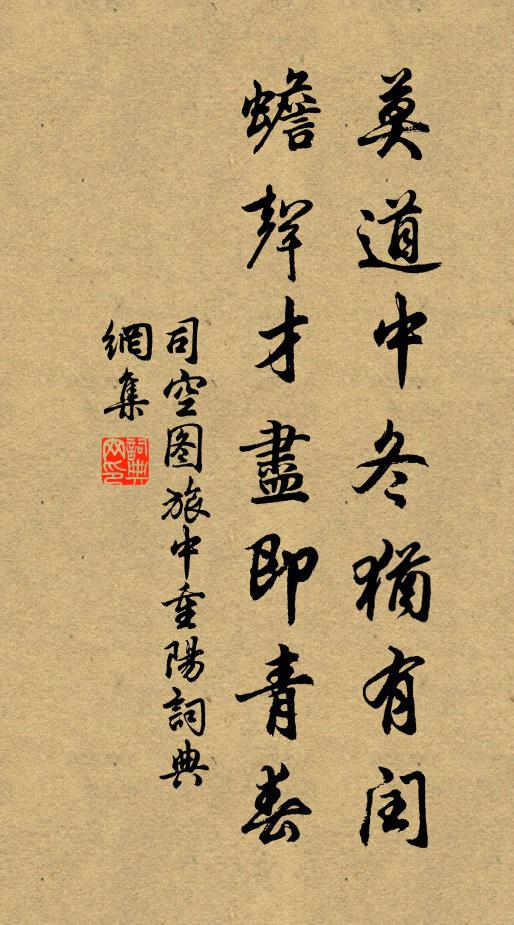 莫道中冬猶有閏
蟾聲才盡即青春
司空圖旅中重陽詞典
網集
詞典
网印